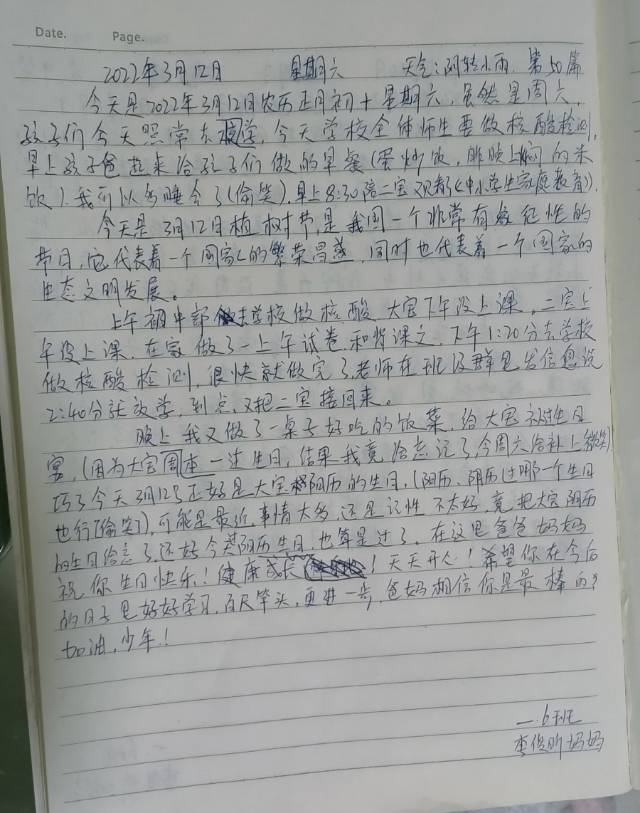 Date. Page.
2022年3月12日 星期六 天气:阴转小雨 第50篇
今天是2022年3月12日农历正月初十星期六,虽然是周六,
孩子们今天照常去上学,今天学校全体师生要做核酸检测,
早上孩子爸起来给孩子们做的早餐(蛋炒饭,昨晚上焖的米
饭).我可以多睡会了(偷笑),早上8:30陪二宝观看《中小学生家庭教育》.
今天是3月12日植树节,是我国一个非常有纪念性的
节日,它代表着一个国家的繁荣昌盛,同时也代表着一个国家的
生态文明发展。
上午初中部去学校做核酸,大宝下午没上课,二宝上
午没上课,在家做了一上午试卷和背课文,下午1:20分去学校
做核酸检测,很快就做完了,老师在班级群里发信息说
2:40分就放学,到点,又把二宝接回来。
晚上我又做了一桌子好吃的饭菜,给大宝过生日
宴,(因为大宝周一过生日,结果我竟给忘记了,今周六给补上(偷笑)
巧了今天3月12号正好是大宝阳历的生日,(阳历、阴历过哪一个生日
也行(偷笑)),可能是最近事情太多,还是记性不太好,竟把大宝阴历
的生日给忘了,还好今天阳历生日,也算是过了,在这里爸爸妈妈
祝你生日快乐!健康成长!天天开心!希望你在今后
的日子里好好学习,百尺竿头,更进一步,爸妈相信你是最棒的?
加油,少年!
一.6班
李俊昕妈妈